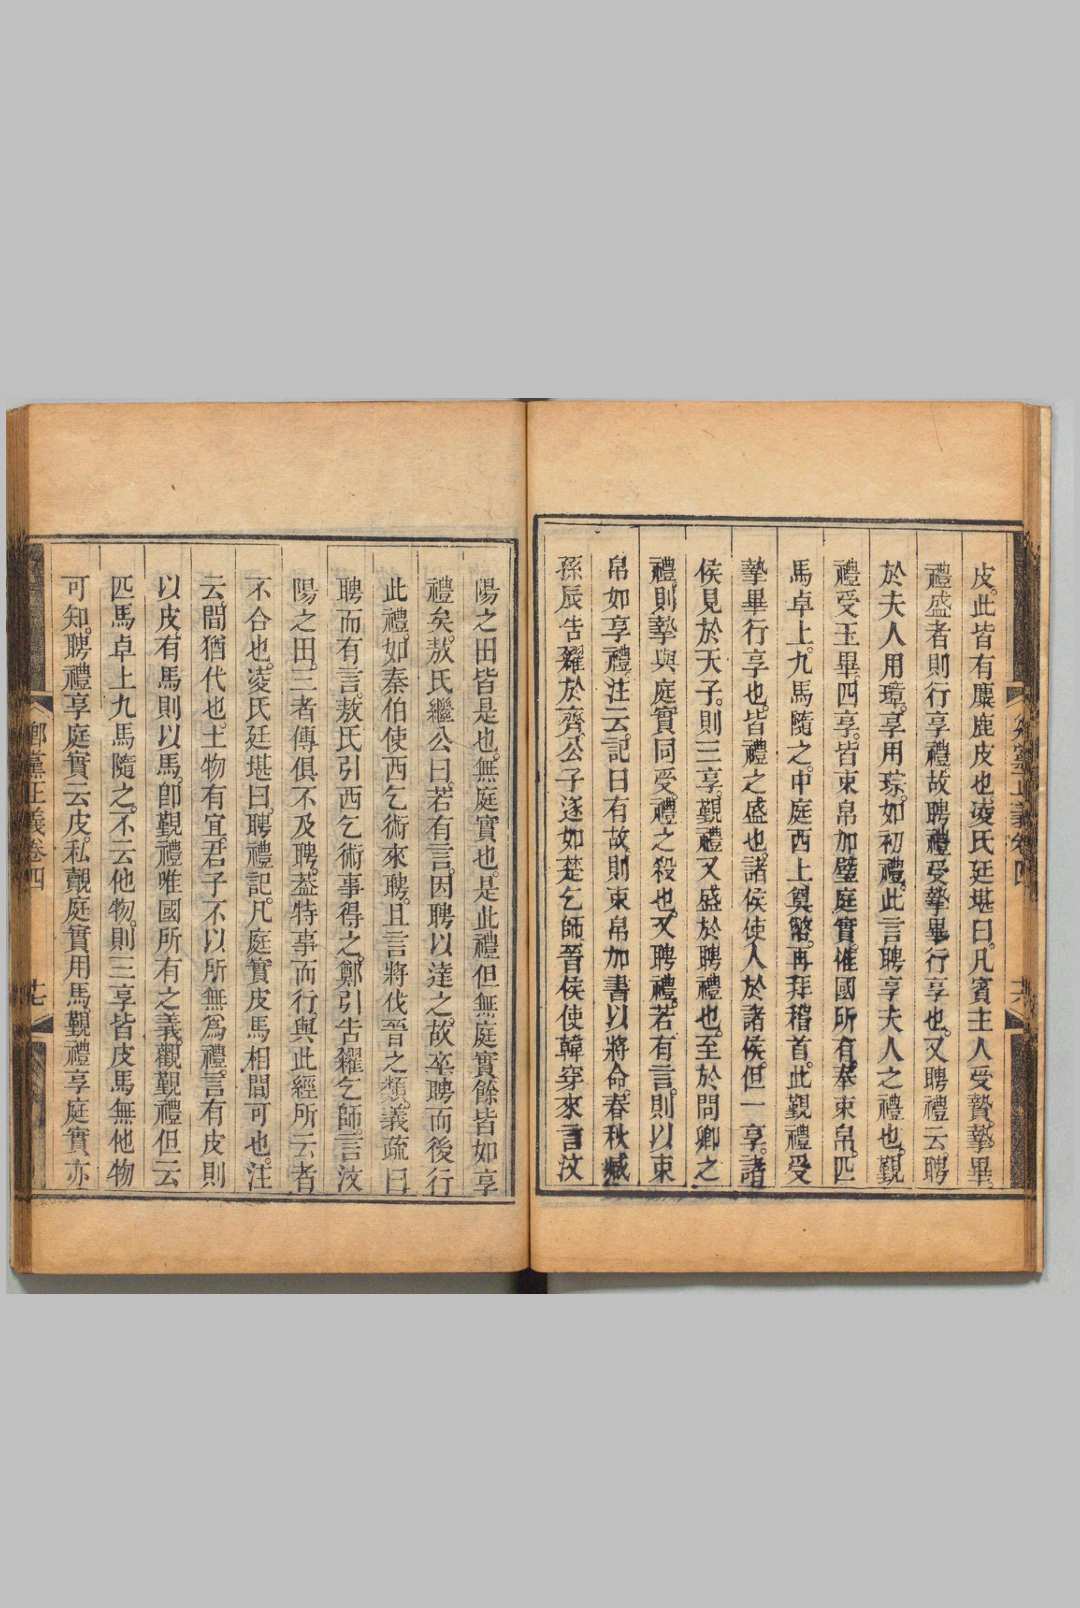 皮。此皆有麋鹿皮也。凌氏廷堪曰。凡賓主人受贄。摯畢。
禮盛者則行享禮。故聘禮受摯畢行享也。又聘禮云聘
於夫人用璋。享用琮。如初禮。此言聘享夫人之禮也。覲
禮受玉畢。四享。皆束帛加璧。庭實惟國所有。奉束帛。匹
馬卓上。九馬隨之。中庭西上。奠幣。再拜稽首。此覲禮受
摯畢行享也。皆禮之盛也。諸侯使人於諸侯。但一享。諸
侯見於天子。則三享。覲禮又盛於聘禮也。至於問卿之
禮。則摯與庭實同受。禮之殺也。又聘禮。若有言。則以束
帛如享禮。注云。記曰有故。則束帛加書以將命。春秋臧
孫辰告糴於齊。公子遂如楚乞師。晉侯使韓穿來言汶
陽之田皆是也。無庭實也。是此禮但無庭實。餘皆如享
禮矣。敖氏繼公曰。若有言。因聘以達之。故卒聘而後行
此禮。如秦伯使西乞術來聘。且言將伐晉之類。義疏曰
聘而有言。敖氏引西乞術事得之。鄭引告糴乞師。言汶
陽之田。三者傳俱不及聘。葢特事而行。與此經所云者
不合也。凌氏廷堪曰。聘禮記。凡庭實皮馬相間可也。注
云。間猶代也。土物有宜。君子不以所無爲禮。言有皮則
以皮。有馬則以馬。卽覲禮唯國所有之義。觀覲禮但云
匹馬卓上九馬隨之。不云他物。則三享皆皮馬無他物
可知。聘禮享庭實云皮。私覿庭實用馬。覲禮享庭實亦
鄉黨正義卷四
七